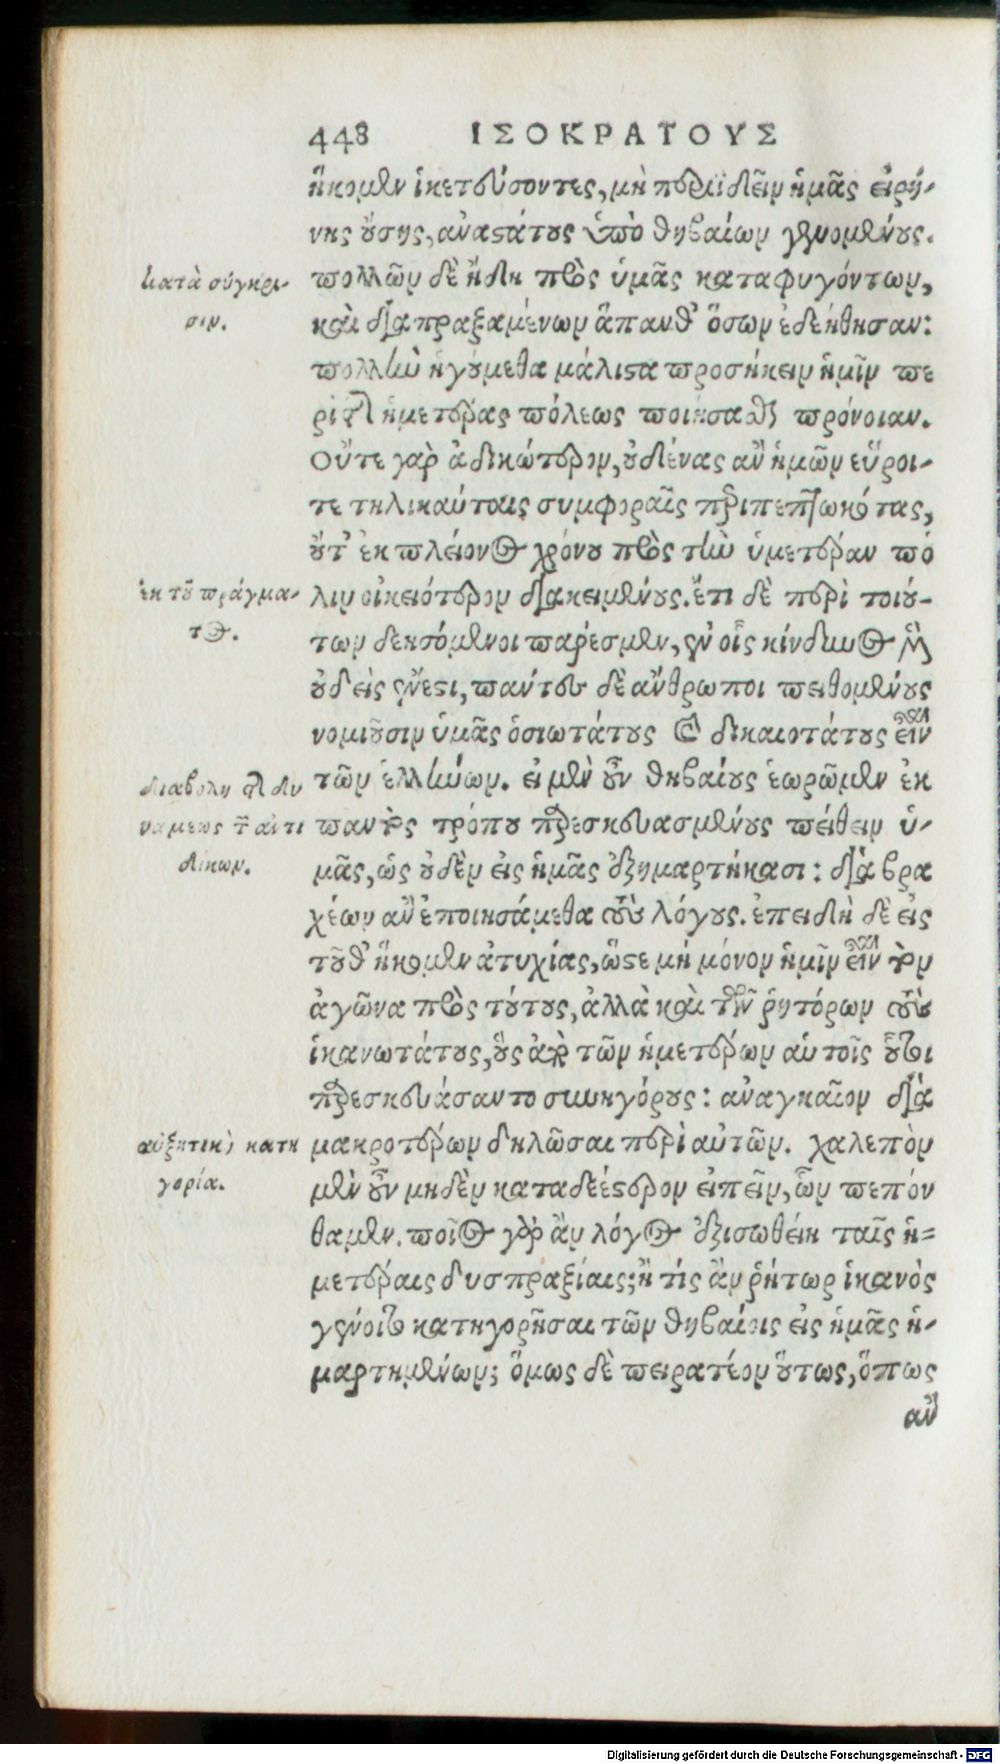 448 ΙΣΟΚΡΑΤΟΥΣ
ἥκομεν ἱκετεύσοντες, μὴ περιϊδεῖν ἡμᾶς εἰρή-
νης οὔσης, ἀναστάτους ὑπὸ θηβαίων γενομένους.
πολλῶν δὲ ἤδη πρὸς ὑμᾶς καταφυγόντων,
κατὰ σύγκρι-
σιν.
καὶ διαπραξαμένων ἅπανθ' ὅσων ἐδεήθησαν:
πολλὴν ἡγούμεθα μάλιστα προσήκειν ἡμῖν πε
ρὶ τῆς ἡμετέρας πόλεως ποιήσασθαι πρόνοιαν.
Οὔτε γὰρ ἀδικώτερον, οὐδένας ἂν ἡμῶν εὕροι-
τε τηλικαύταις συμφοραῖς περιπεπτωκότας,
οὔτ' ἐκ πλείονος χρόνου πρὸς τὴν ὑμετέραν πό
λιν οἰκειότερον διακειμένους. ἔτι δὲ περὶ τοιού-
ἐκ τοῦ πράγμα-
τος.
των δεησόμενοι πάρεσμεν, ἐν οἷς κίνδυνος μὲν
οὐδεὶς ἔνεστι, πάντες δὲ ἄνθρωποι πειθομένους
νομιοῦσιν ὑμᾶς ὁσιωτάτους καὶ δικαιοτάτους εἶναι
τῶν ἑλλήνων. εἰ μὲν οὖν θηβαίους ἑωρῶμεν ἐκ
διαβολὴ τῆς δυ
νάμεως τῶν ἀντι
δίκων.
παντὸς τρόπου παρεσκευασμένους πείθειν ὑ-
μᾶς, ὡς οὐδὲν εἰς ἡμᾶς ἐξημαρτήκασι: διὰ βρα
χέων ἂν ἐποιησάμεθα τοὺς λόγους. ἐπειδὴ δὲ εἰς
τοῦθ' ἥκομεν ἀτυχίας, ὥστε μὴ μόνον ἡμῖν εἶναι τὸν
ἀγῶνα πρὸς τούτους, ἀλλὰ καὶ τῶν ῥητόρων τοὺς
ἱκανωτάτους, οὓς ἀπὸ τῶν ἡμετέρων αὑτοῖς οὗτοι
παρεσκευάσαντο συνηγόρους: ἀναγκαῖον διὰ
μακροτέρων δηλῶσαι περὶ αὐτῶν. χαλεπὸν
αὐξητικὴ κατη
γορία.
μὲν οὖν μηδὲν καταδεέστερον εἰπεῖν, ὧν πεπόν
θαμεν. ποῖος γὰρ ἂν λόγος ἐξισωθείη ταῖς ἡ-
μετέραις δυσπραξίαις; ἢ τίς ἂν ῥήτωρ ἱκανὸς
γένοιτο κατηγορῆσαι τῶν θηβαίοις εἰς ἡμᾶς ἡ-
μαρτημένων; ὅμως δὲ πειρατέον οὕτως, ὅπως
ἂν
Digitalisierung gefördert durch die Deutsche Forschungsgemeinschaft - DFG